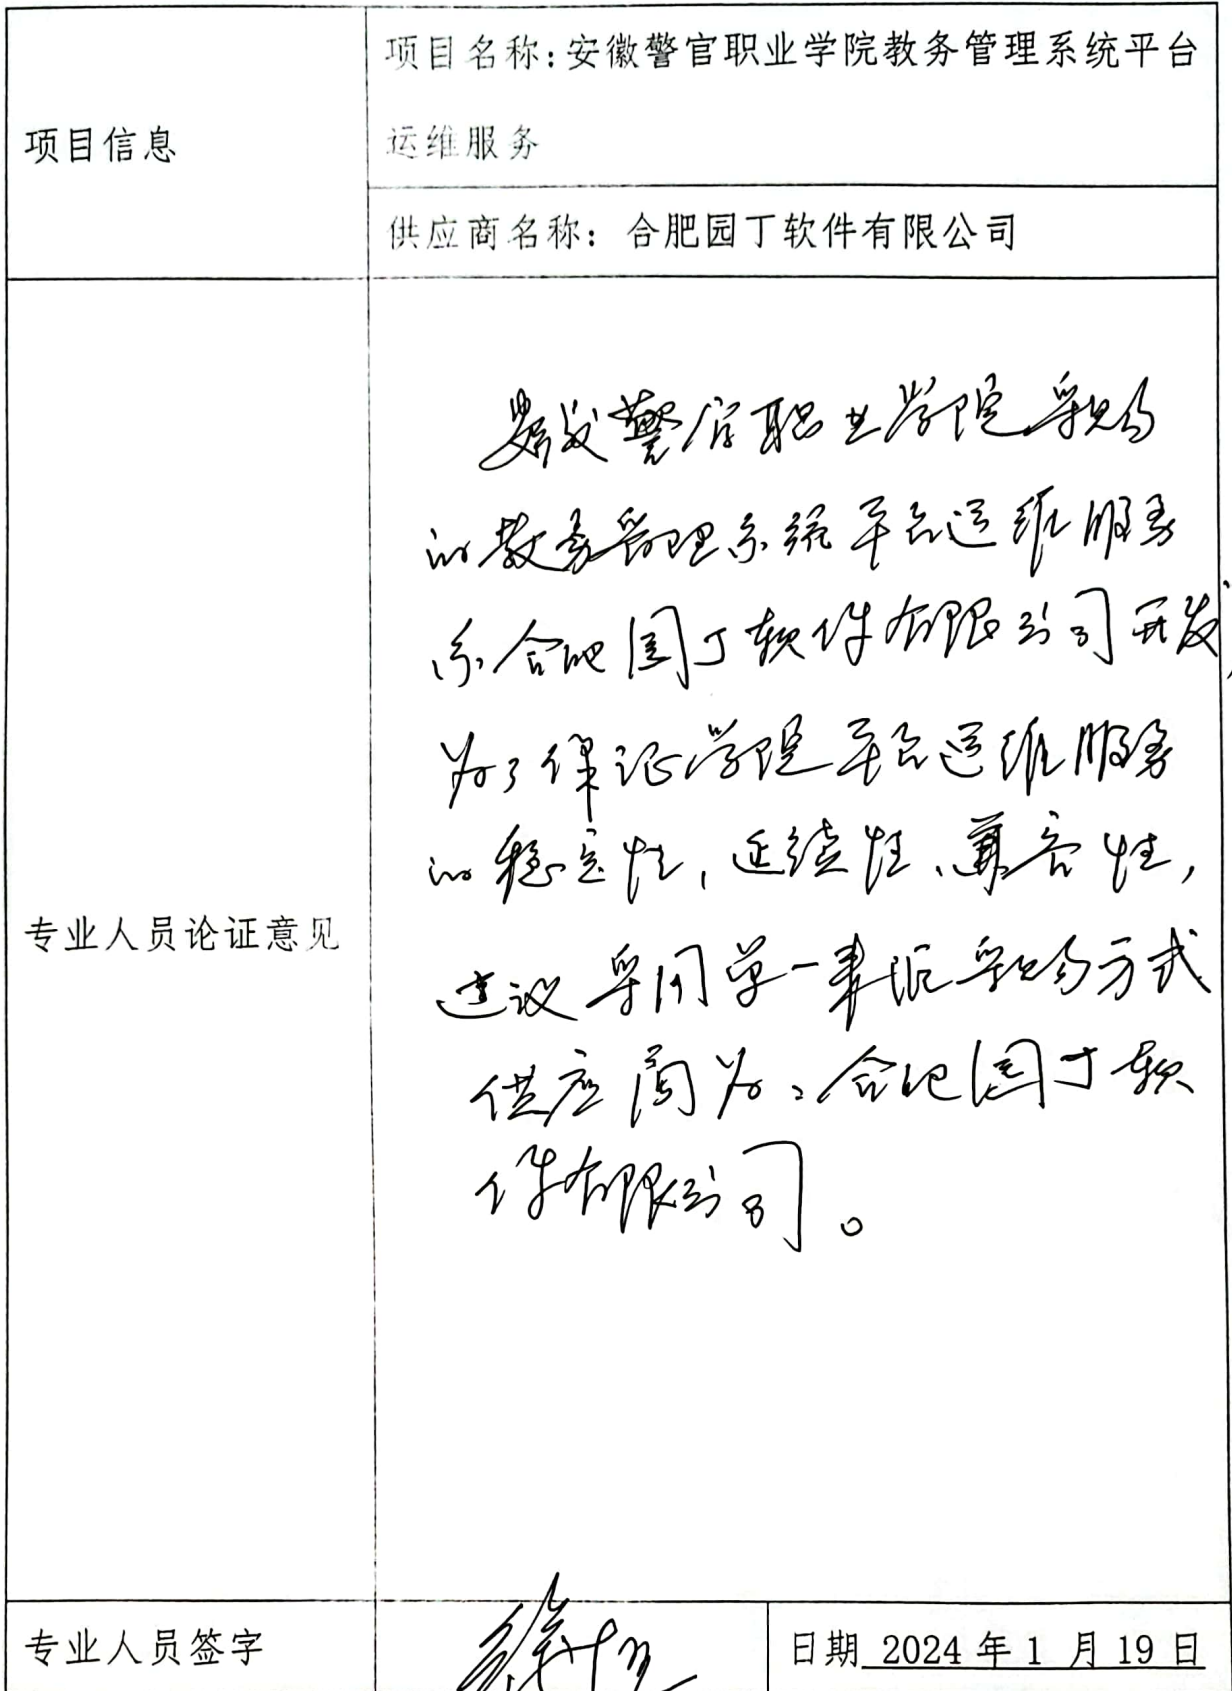 项目信息
项目名称:安徽警官职业学院教务管理系统平台
运维服务
供应商名称：合肥园丁软件有限公司
专业人员论证意见
警官职业学院采购
的教务管理系统平台运维服务
系合肥园丁软件有限公司开发,
为了保证学院平台运维服务
的稳定性,延续性、兼容性,
建议采用单一来源采购方式
供应商为：合肥园丁软
件有限公司。
专业人员签字
日期 2024年1月19日